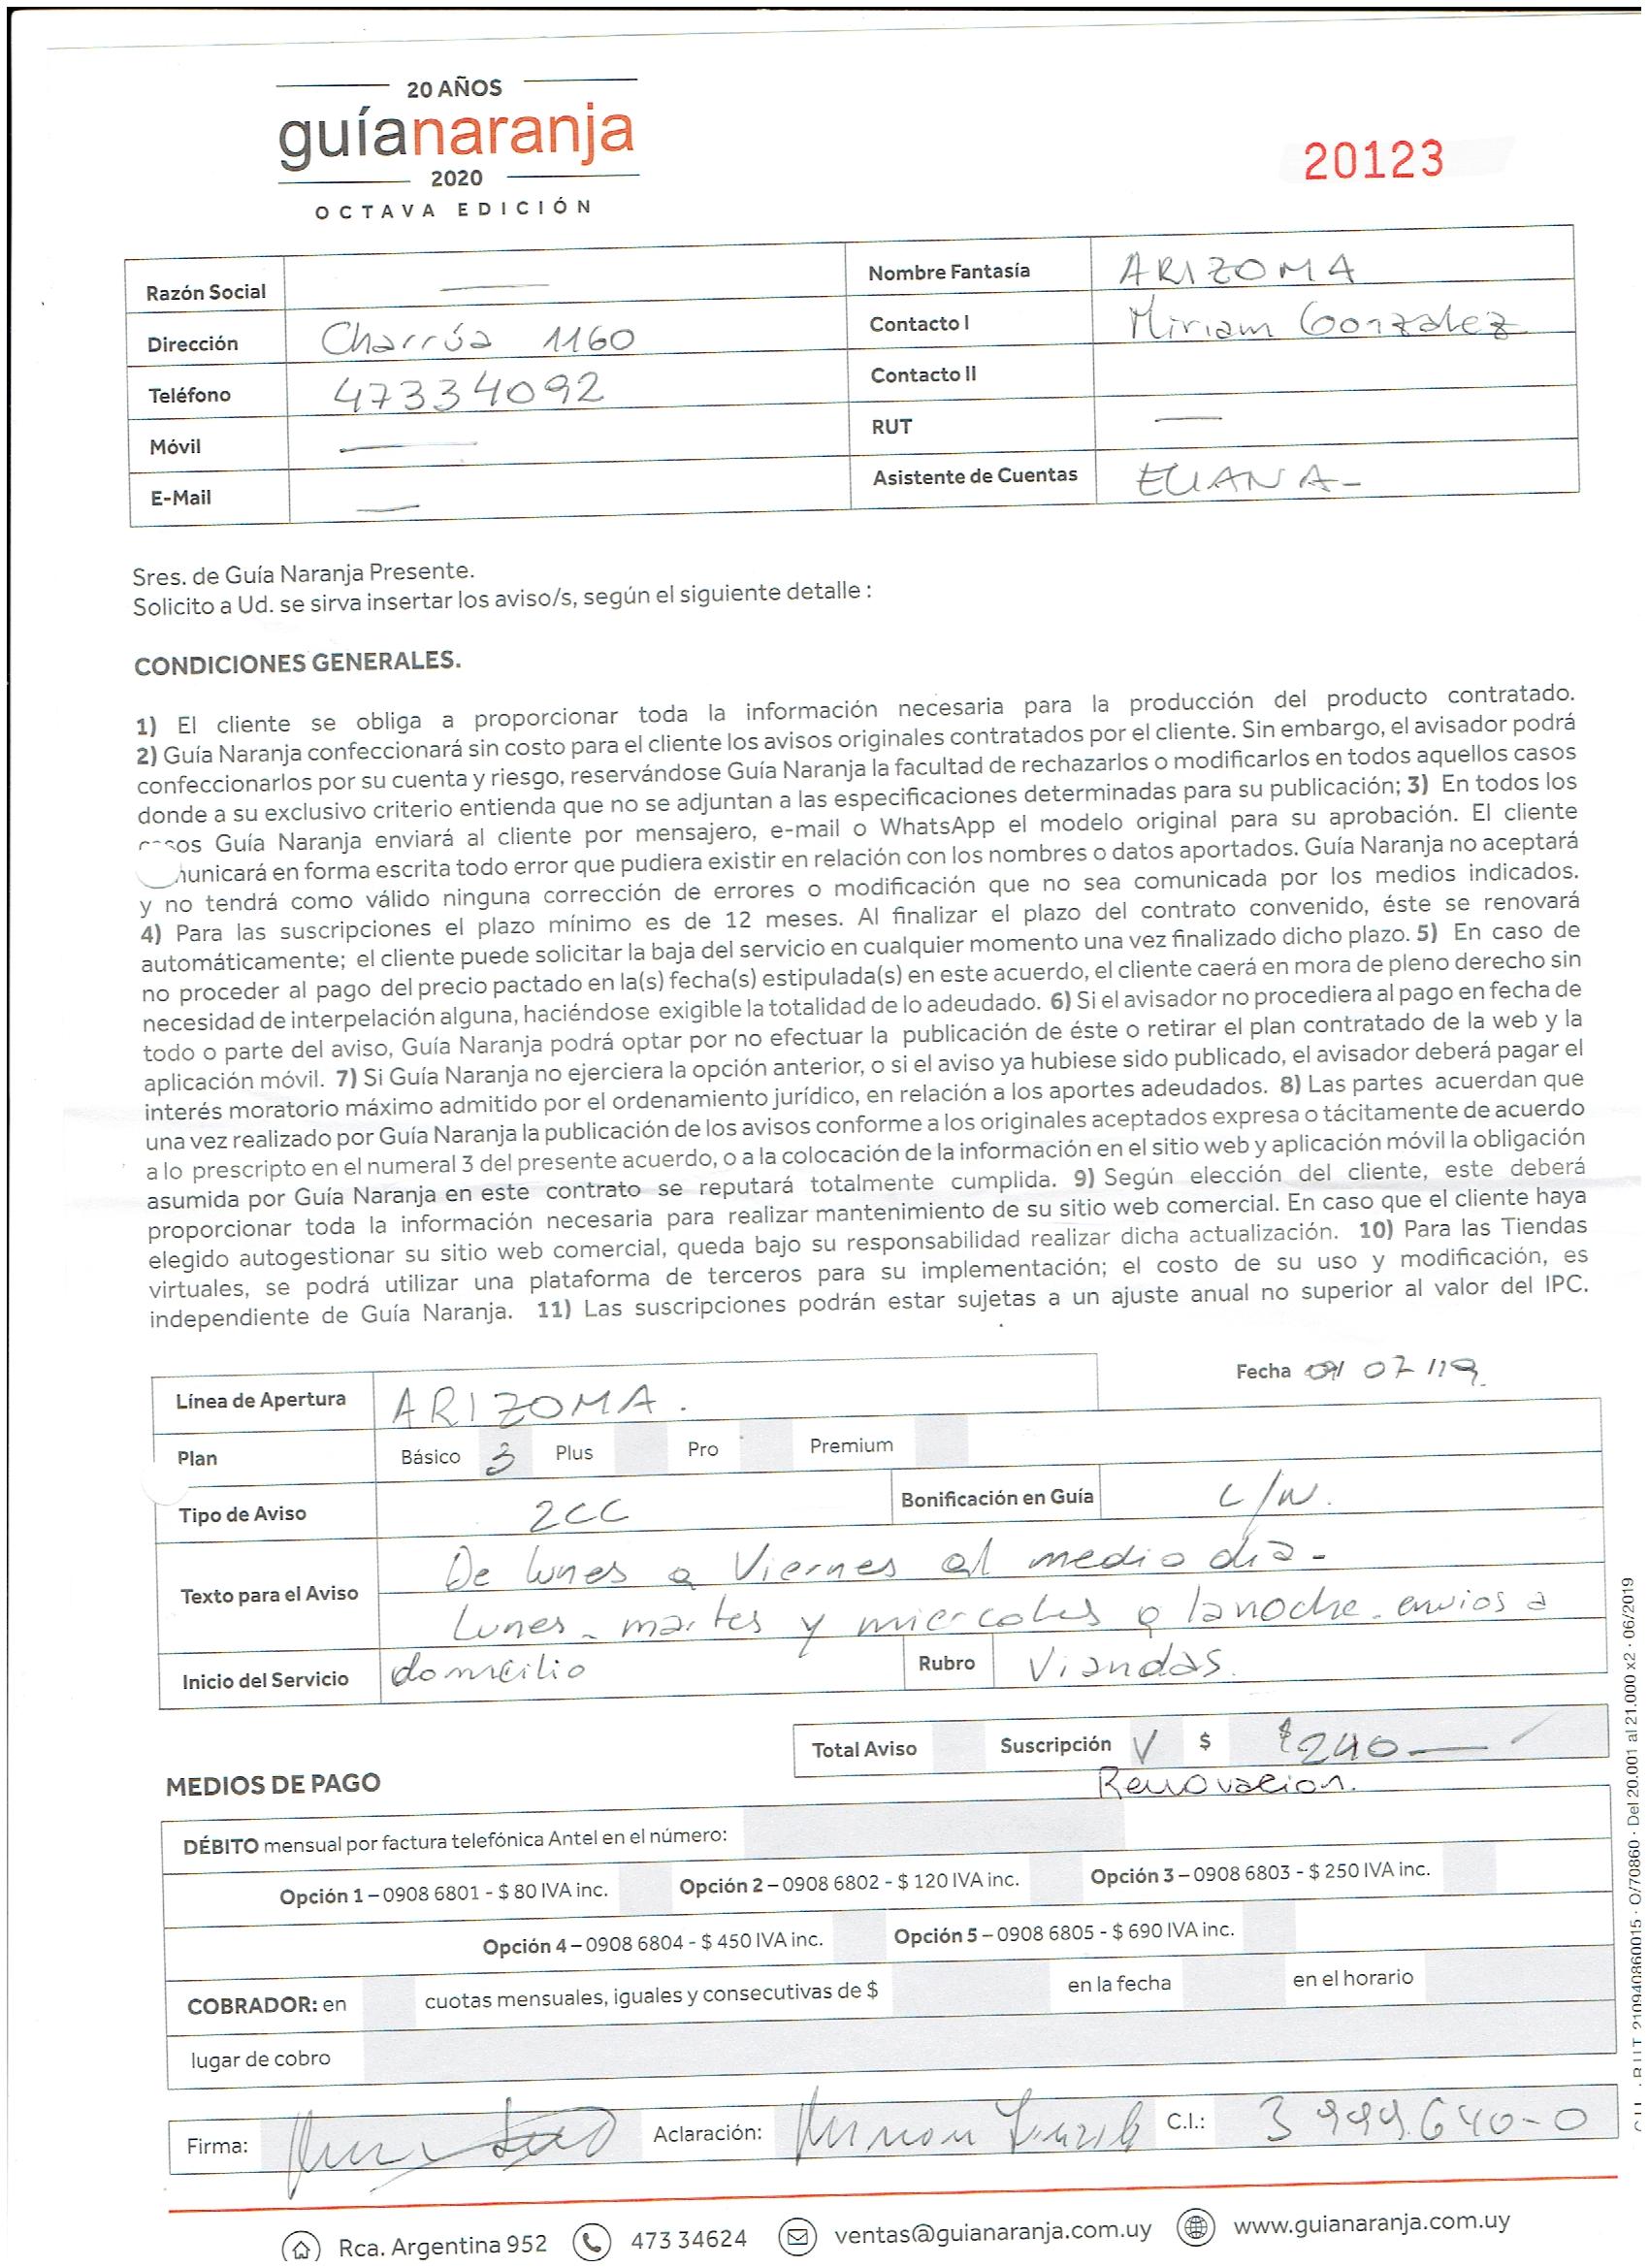 20 AÑOS
guíanaranja
2020
OCTAVA EDICIÓN
20123
Razón Social —
Nombre Fantasía ARIZOMA
Dirección Charrúa 1160
Contacto I Miriam Gonzalez
Teléfono 47334092
Contacto II
Móvil —
RUT —
E-Mail —
Asistente de Cuentas ELIANA-
Sres. de Guía Naranja Presente.
Solicito a Ud. se sirva insertar los aviso/s, según el siguiente detalle :
CONDICIONES GENERALES.
1) El cliente se obliga a proporcionar toda la información necesaria para la producción del producto contratado.
2) Guía Naranja confeccionará sin costo para el cliente los avisos originales contratados por el cliente. Sin embargo, el avisador podrá
confeccionarlos por su cuenta y riesgo, reservándose Guía Naranja la facultad de rechazarlos o modificarlos en todos aquellos casos
donde a su exclusivo criterio entienda que no se adjuntan a las especificaciones determinadas para su publicación; 3) En todos los
casos Guía Naranja enviará al cliente por mensajero, e-mail o WhatsApp el modelo original para su aprobación. El cliente
municará en forma escrita todo error que pudiera existir en relación con los nombres o datos aportados. Guía Naranja no aceptará
y no tendrá como válido ninguna corrección de errores o modificación que no sea comunicada por los medios indicados.
4) Para las suscripciones el plazo mínimo es de 12 meses. Al finalizar el plazo del contrato convenido, éste se renovará
automáticamente; el cliente puede solicitar la baja del servicio en cualquier momento una vez finalizado dicho plazo. 5) En caso de
no proceder al pago del precio pactado en la(s) fecha(s) estipulada(s) en este acuerdo, el cliente caerá en mora de pleno derecho sin
necesidad de interpelación alguna, haciéndose exigible la totalidad de lo adeudado. 6) Si el avisador no procediera al pago en fecha de
todo o parte del aviso, Guía Naranja podrá optar por no efectuar la publicación de éste o retirar el plan contratado de la web y la
aplicación móvil. 7) Si Guía Naranja no ejerciera la opción anterior, o si el aviso ya hubiese sido publicado, el avisador deberá pagar el
interés moratorio máximo admitido por el ordenamiento jurídico, en relación a los aportes adeudados. 8) Las partes acuerdan que
una vez realizado por Guía Naranja la publicación de los avisos conforme a los originales aceptados expresa o tácitamente de acuerdo
a lo prescripto en el numeral 3 del presente acuerdo, o a la colocación de la información en el sitio web y aplicación móvil la obligación
asumida por Guía Naranja en este contrato se reputará totalmente cumplida. 9) Según elección del cliente, este deberá
proporcionar toda la información necesaria para realizar mantenimiento de su sitio web comercial. En caso que el cliente haya
elegido autogestionar su sitio web comercial, queda bajo su responsabilidad realizar dicha actualización. 10) Para las Tiendas
virtuales, se podrá utilizar una plataforma de terceros para su implementación; el costo de su uso y modificación, es
independiente de Guía Naranja. 11) Las suscripciones podrán estar sujetas a un ajuste anual no superior al valor del IPC.
Fecha 07/19
Línea de Apertura ARIZOMA.
Plan Básico 3 Plus Pro Premium
Tipo de Aviso 2CC Bonificación en Guía L/N.
Texto para el Aviso De lunes a Viernes al medio día-
Lunes - martes y miercoles a la noche. envios a
Inicio del Servicio domicilio Rubro Viandas.
Total Aviso Suscripción V $ $240—
Renovacion.
MEDIOS DE PAGO
DÉBITO mensual por factura telefónica Antel en el número:
Opción 1 – 0908 6801 - $ 80 IVA inc. Opción 2 – 0908 6802 - $ 120 IVA inc. Opción 3 – 0908 6803 - $ 250 IVA inc.
Opción 4 – 0908 6804 - $ 450 IVA inc. Opción 5 – 0908 6805 - $ 690 IVA inc.
COBRADOR: en cuotas mensuales, iguales y consecutivas de $ en la fecha en el horario
lugar de cobro
Firma: Aclaración: C.I.: 3 999.640-0
Rca. Argentina 952 473 34624 ventas@guianaranja.com.uy www.guianaranja.com.uy
R.U.T. 210940860015 · O/70860 · Del 20.001 al 21.000 x2 · 06/2019